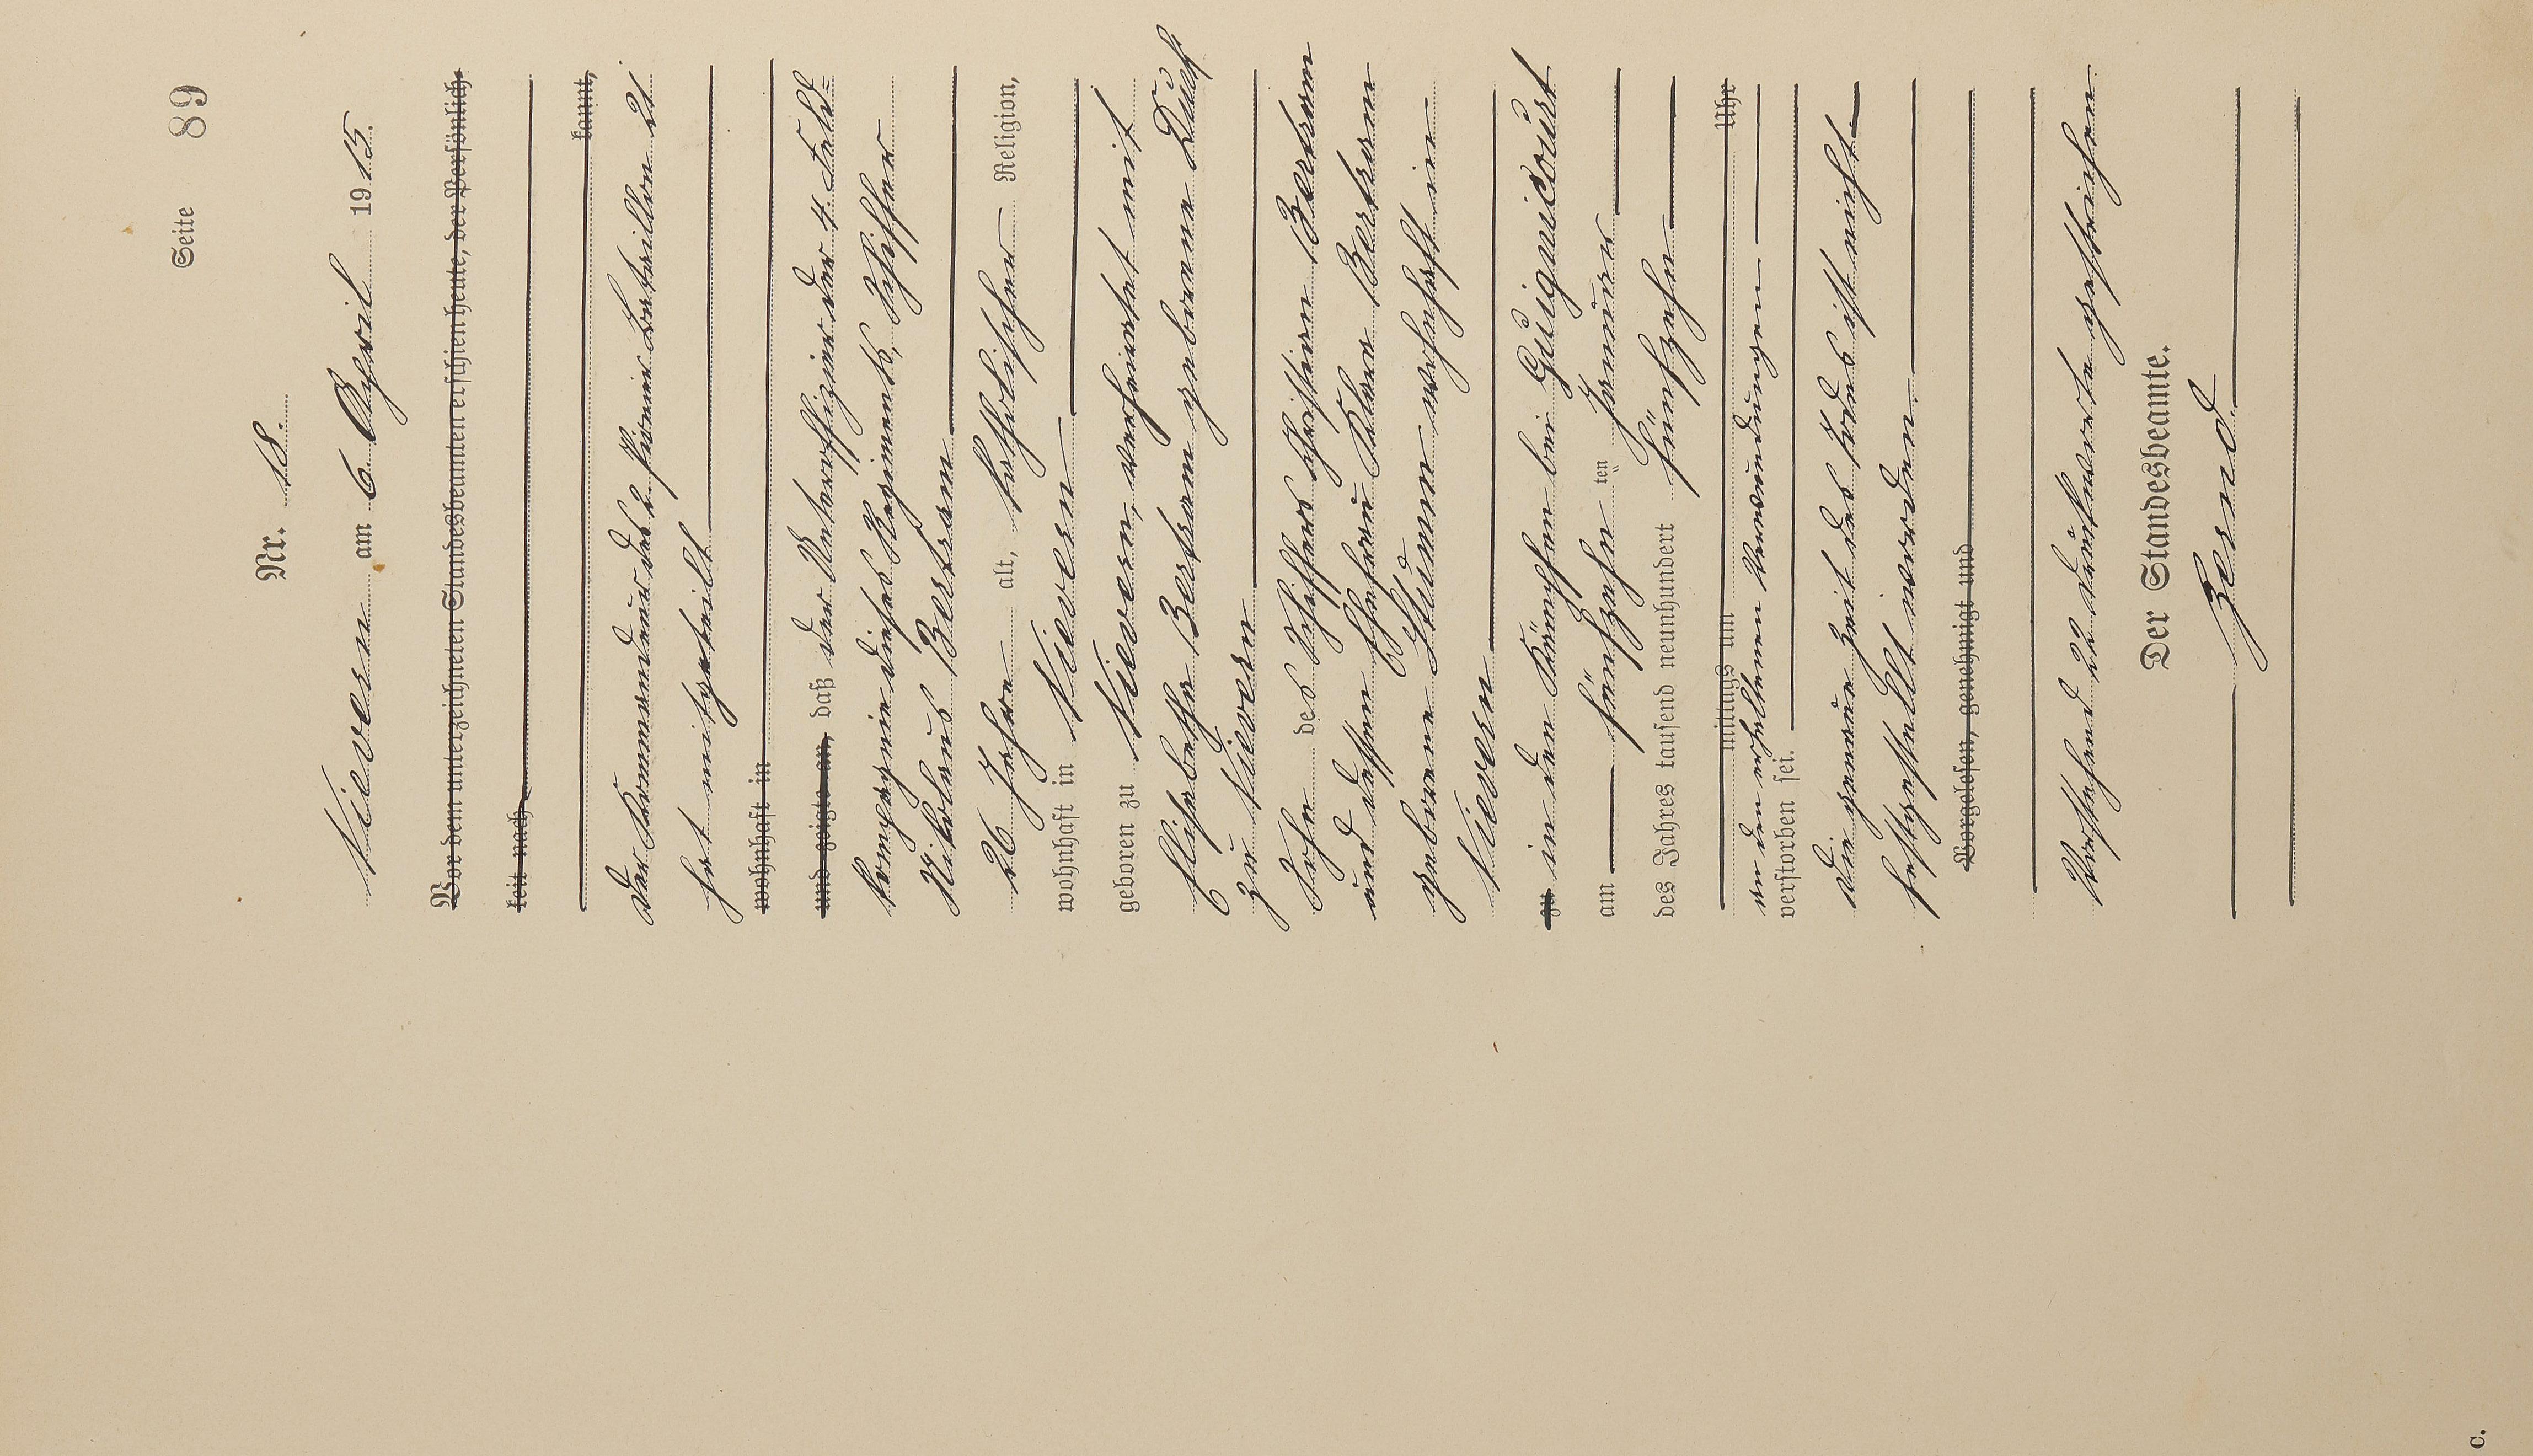 Seite 89
Nr. 18.
Nievern am 6. April 1915.
Vor dem unterzeichneten Standesbeamten erschien heute, der Persönlich-
keit nach
kannt,
Der Kommandeur des 2. Pionier Bataillons 21
hat mitgeteilt
wohnhaft in
und zeigte an, daß der Unteroffizier der 4. Feld-
kompagnie dieses Regiments, Schiffer
Nikolaus Bertram
26 Jahre alt, katholischer Religion,
wohnhaft in Nievern
geboren zu Nievern, verheiratet mit
Elisabetha Bertram geborene
zu Nievern
Sohn des Schiffers Christian Bertram
und dessen Ehefrau Klara Bertram
geborene wohnhaft in
Nievern
zu in den Kämpfen bei Guignicourt
am fünfzehn ten Januar
des Jahres tausend neunhundert fünfzehn
mittags um Uhr
an den erhaltenen Verwundungen
verstorben sei.
Die genaue Zeit des Todes ist nicht
festgestellt worden.
Vorgelesen, genehmigt und
Vorstehend 22 Druckworte gestrichen
Der Standesbeamte.
c.